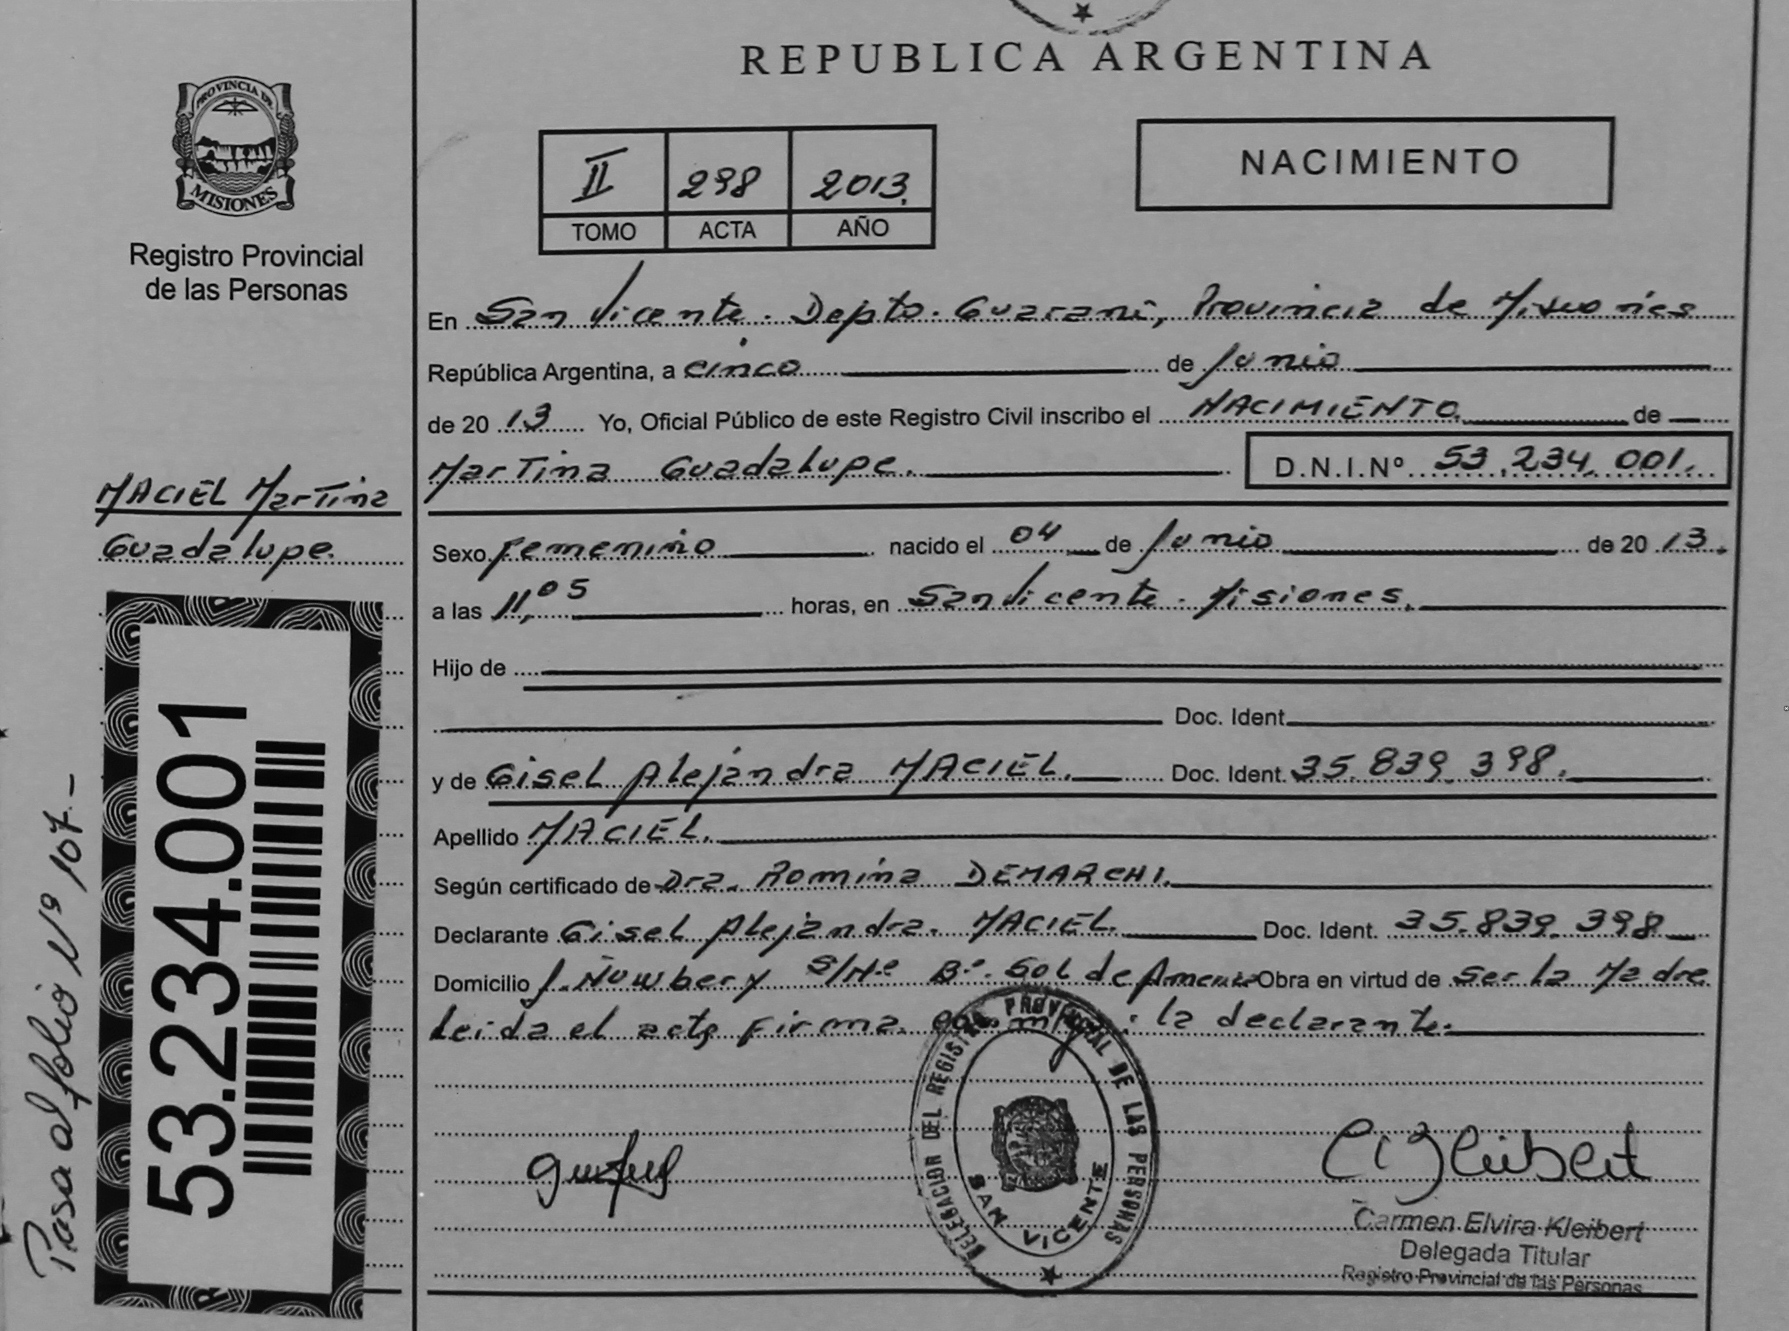 REPUBLICA ARGENTINA
PROVINCIA DE
MISIONES
Registro Provincial
de las Personas
II 298 2013
TOMO ACTA AÑO
NACIMIENTO
En San Vicente. Depto. Guaraní, Provincia de Misiones
República Argentina, a cinco de Junio
de 2013 Yo, Oficial Público de este Registro Civil inscribo el NACIMIENTO de
Martina Guadalupe. D.N.I.Nº 53.234.001.
MACIEL Martina
Guadalupe.
Sexo femenino nacido el 04 de Junio de 2013.
a las 11,05 horas, en San Vicente. Misiones.
Hijo de
Doc. Ident.
y de Gisel Alejandra MACIEL. Doc. Ident. 35.839.398.
Apellido MACIEL.
Según certificado de Dra. Romina DEMARCHI.
Declarante Gisel Alejandra. MACIEL. Doc. Ident. 35.839.398
Domicilio J. Nuwbery S/Nº Bº. Sol de America Obra en virtud de ser la Madre
leida el acta firma la declarante.
53.234.001
Pasa al folio Nº 107.-
DELEGACION DEL REGISTRO PROVINCIAL DE LAS PERSONAS
SAN VICENTE
Carmen Elvira Kleibert
Delegada Titular
Registro Provincial de las Personas